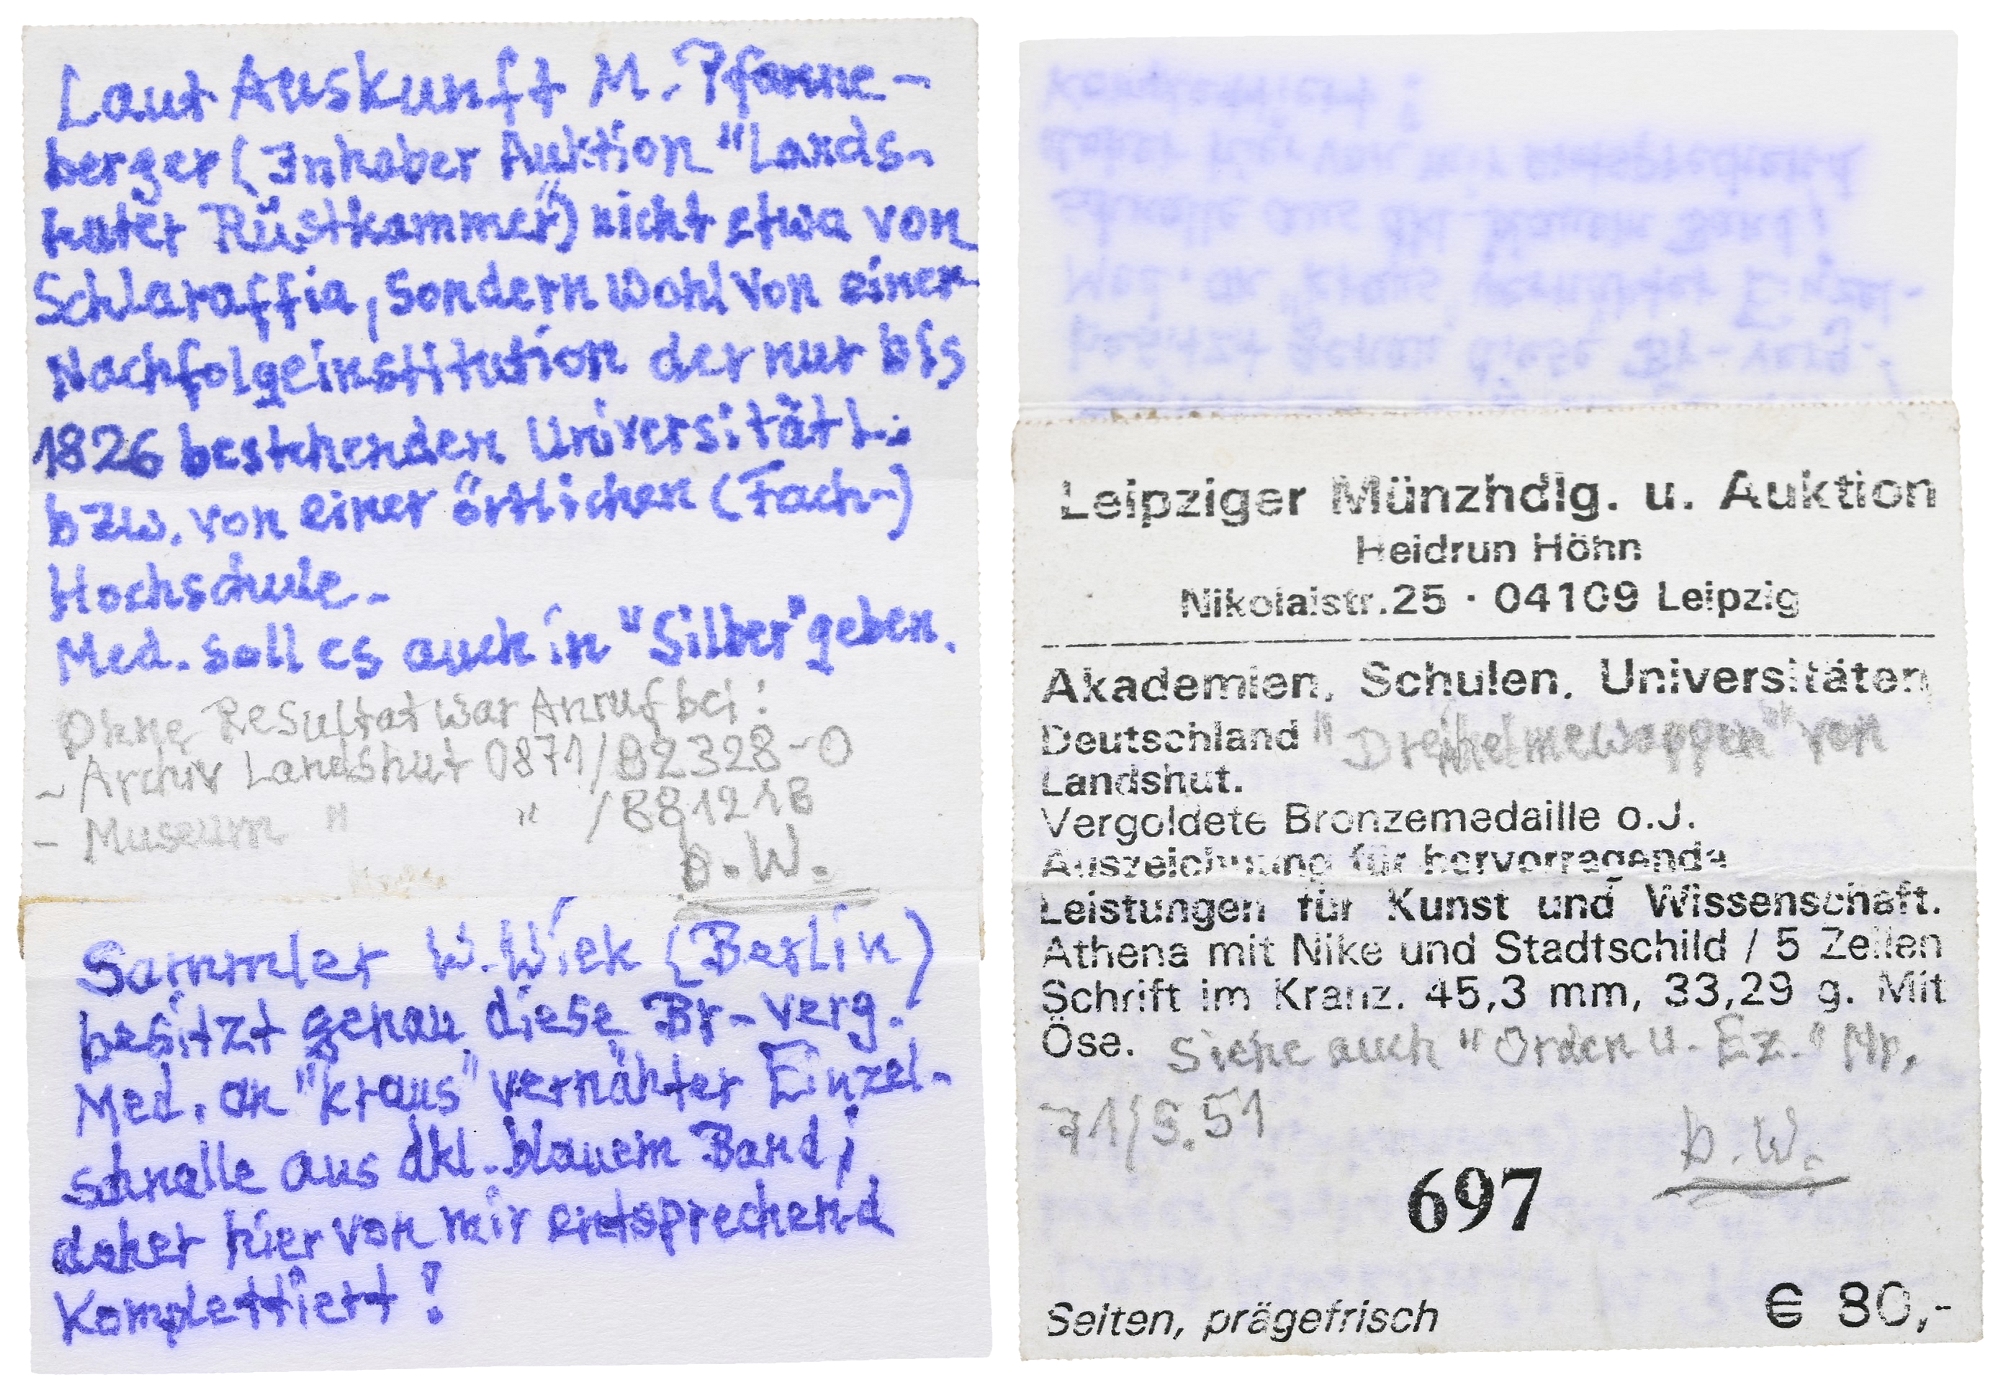 Laut Auskunft M. Pfanne-
berger (Inhaber Auktion "Lands-
huter Rüstkammer") nicht etwa von
Schlaraffia, sondern wohl von einer
Nachfolgeinstitution der nur bis
1826 bestehenden Universität L.
bzw. von einer örtlichen (Fach-)
Hochschule.
Med. soll es auch in "Silber" geben.
Ohne Resultat war Anruf bei:
- Archiv Landshut 0871/
- Museum " "
b.W.
Sammler W. Wiek (Berlin)
besitzt genau diese Br-verg.
Med. an "kraus" vernähter Einzel-
schnalle aus dkl. blauem Band;
daher hier von mir entsprechend
Komplettiert!
Leipziger Münzhdlg. u. Auktion
Heidrun Höhn
Nikolaistr.25 · 04109 Leipzig
Akademien, Schulen, Universitäten
Deutschland "Dreihelmewappen" von
Landshut.
Vergoldete Bronzemedaille o.J.
Auszeichnung für hervorragende
Leistungen für Kunst und Wissenschaft.
Athena mit Nike und Stadtschild / 5 Zeilen
Schrift im Kranz. 45,3 mm, 33,29 g. Mit
Öse. Siehe auch "Orden u. Ez." Nr.
71/S.51
b.W.
697
Selten, prägefrisch € 80,-